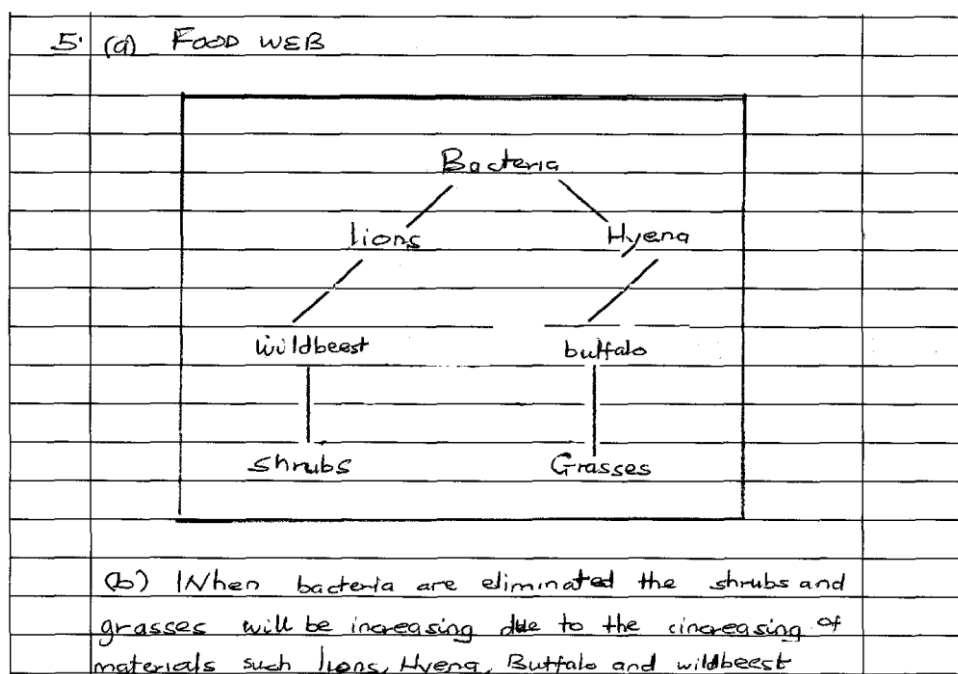 5. (a) FOOD WEB
Bacteria
lions Hyena
wildbeest buffalo
Shrubs Grasses
(b) When bacteria are eliminated the shrubs and
grasses will be increasing due to the cincreasing of
materials such lions, Hyena, Buffalo and wildbeest